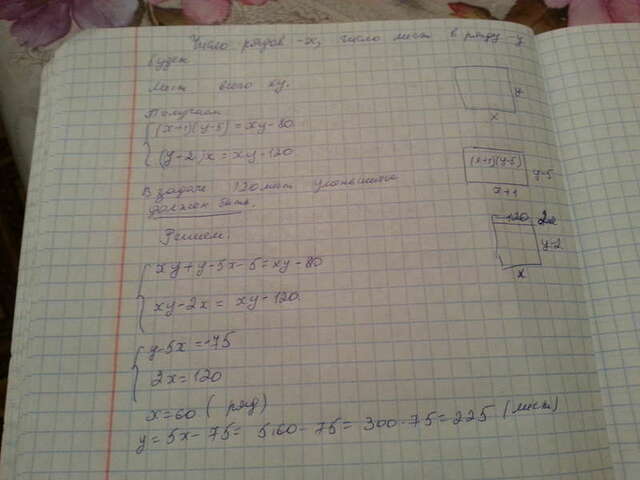 Число рядов -x, число мест в ряду -y
будет
Мест всего xy.
Получаем
(x+1)(y-5)=xy-80
(y-2)x=xy-120
В задаче 120 мест
должен быть.
Решаем:
xy+y-5x-5=xy-80
xy-2x=xy-120.
y-5x=-75
2x=120
x=60 (ряд)
y=5x-75= 5·60-75= 300-75=225 (мест)
y
x
(x+1)(y-5)
y-5
x+1
-120
2x
y-2
x